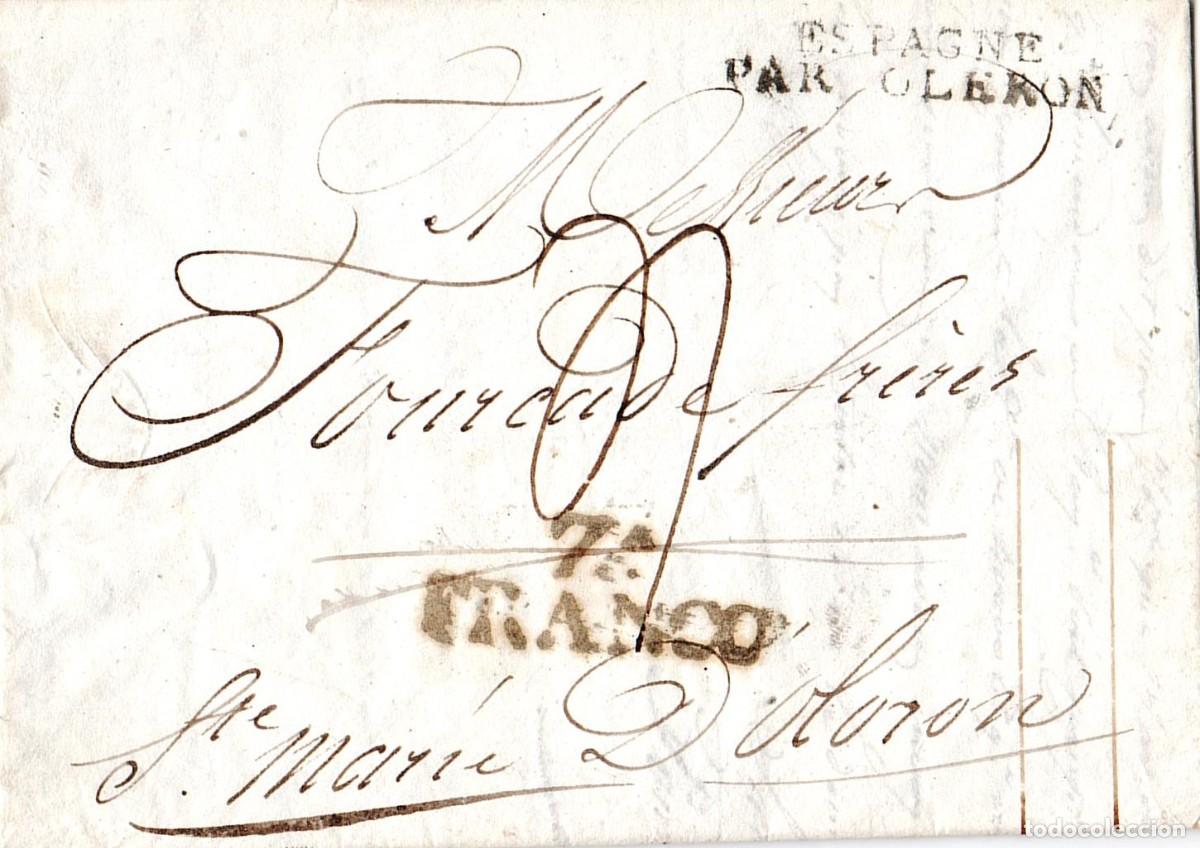 ESPAGNE
PAR OLERON
Messieurs
Fourcade frères
Za
FRANCO
Ste Marie D'oloron
todocoleccion